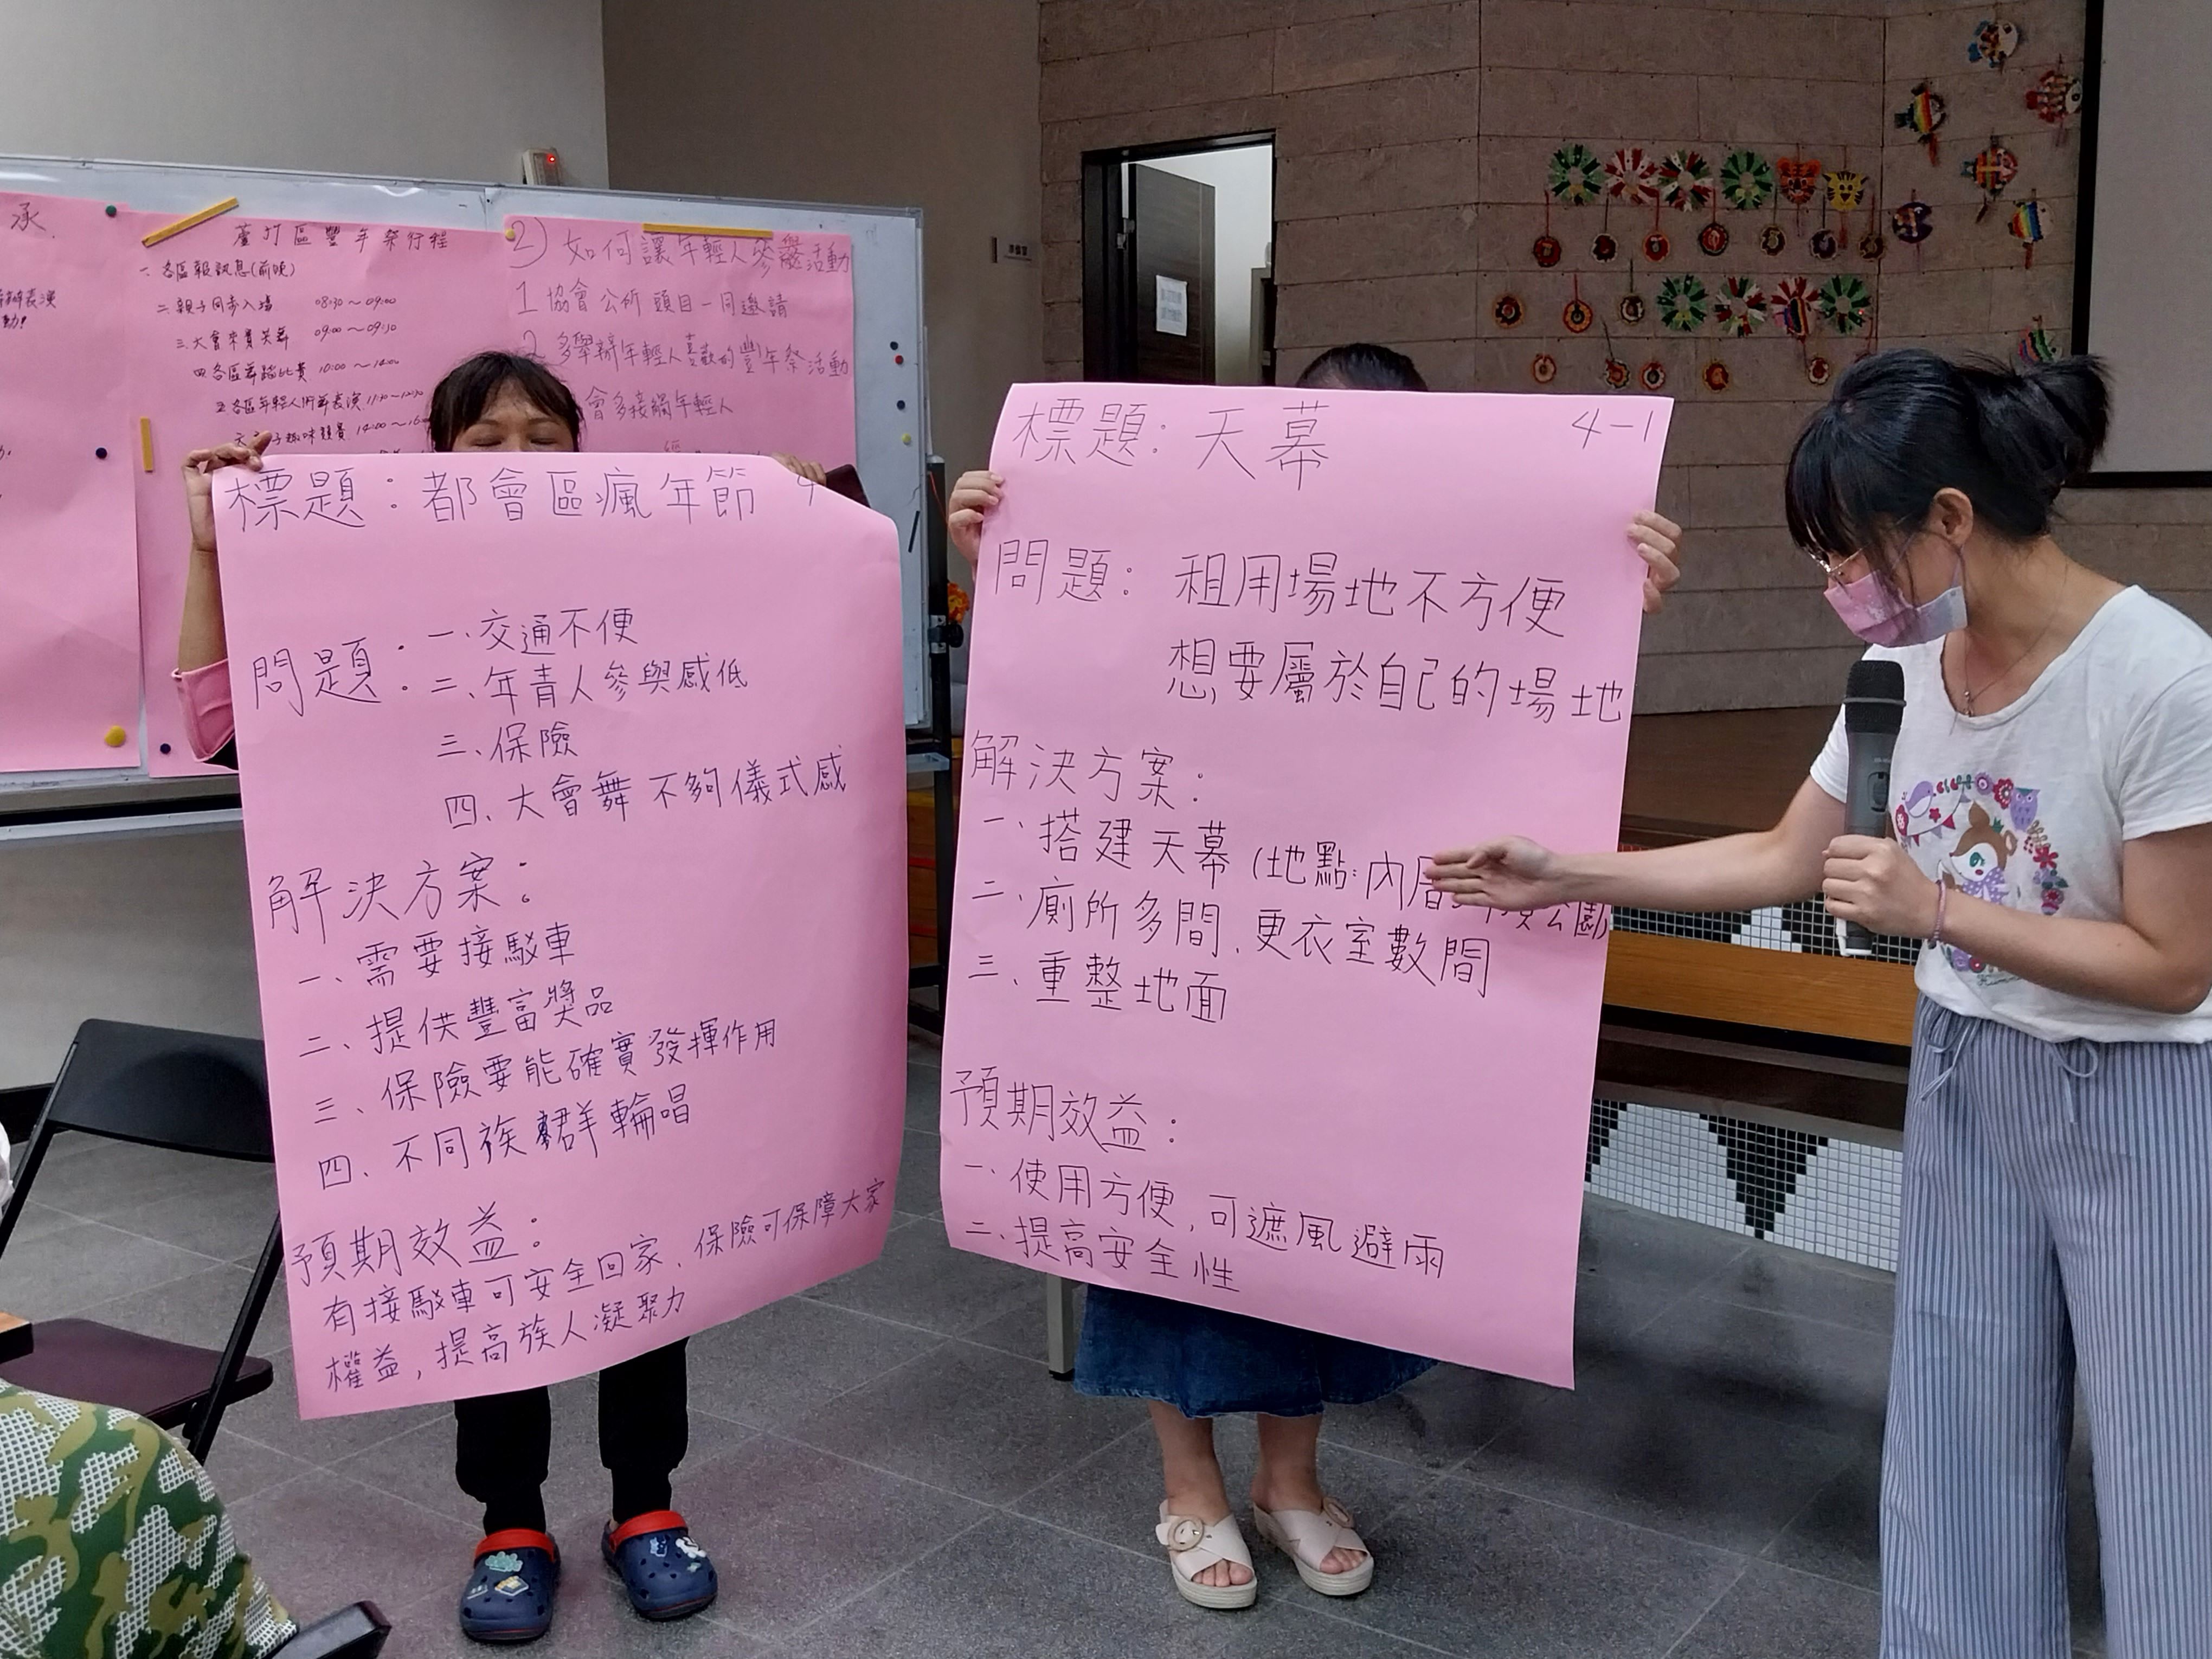 承
蘆竹區豐年祭行程
一、各區報訊息(前晚)
二、親子同步入場 08:30～09:00
三、大會來賓共舞 09:00～09:30
四、各區舞蹈比賽 10:00～14:00
五、各區年輕人術舞表演 11:30～12:30
子趣味競賽 14:00～16:00
2) 如何讓年輕人參與活動
1 協會 公所 頭目一同邀請
2 多舉辦年輕人喜歡的豐年祭活動
會多接觸年輕人
標題：都會區瘋年節 4
問題：一、交通不便
二、年青人參與感低
三、保險
四、大會舞 不夠儀式感
解決方案：
一、需要接駁車
二、提供豐富獎品
三、保險要能確實發揮作用
四、不同族群輪唱
預期效益：
有接駁車可安全回家、保險可保障大家
權益，提高族人凝聚力
標題：天幕 4-1
問題：租用場地不方便
想要屬於自己的場地
解決方案：
一、搭建天幕 (地點:內厝 公園)
二、廁所多間、更衣室數間
三、重整地面
預期效益：
一、使用方便，可遮風避雨
二、提高安全性